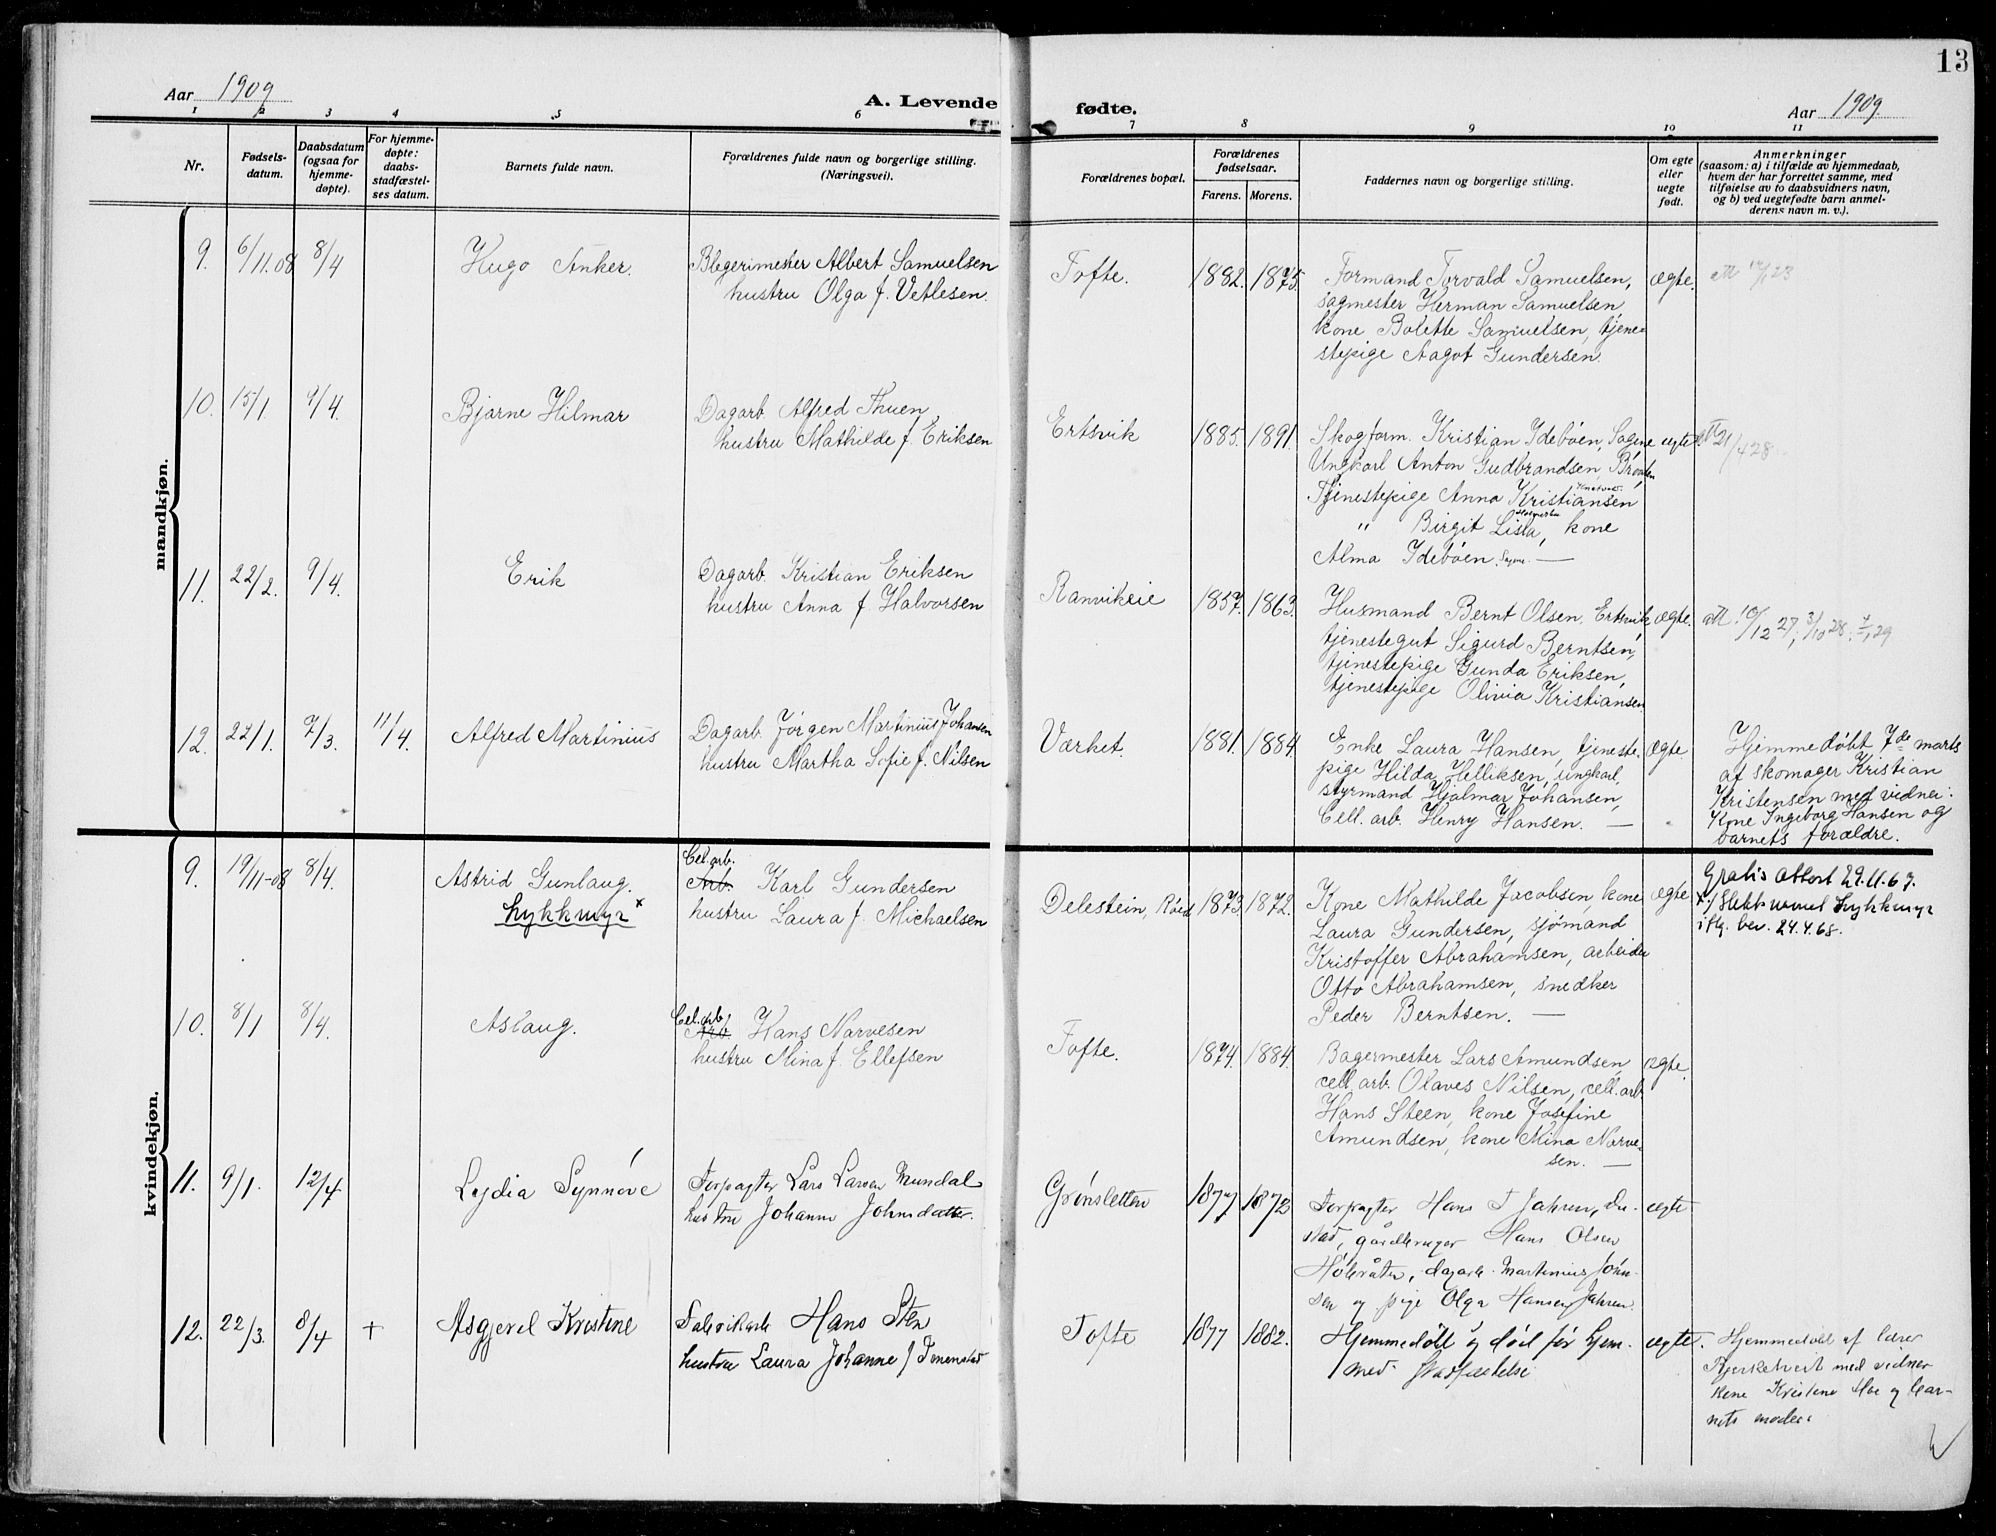 13
Aar 1909
A. Levende fødte.
Aar 1909.
1 2 3 4 5 6 7 8 9 10 11
Nr.
Fødsels-
datum.
Daabsdatum
(ogsaa for
hjemme-
døpte).
For hjemme-
døpte:
daabs-
stadfæstel-
ses datum.
Barnets fulde navn.
Forældrenes fulde navn og borgerlige stilling.
(Næringsvei).
Forældrenes bopæl.
Forældrenes
fødselsaar.
Farens. Morens.
Faddernes navn og borgerlige stilling.
Om egte
eller
uegte
født.
Anmerkninger
(saasom: a) i tilfælde av hjemmedaab,
hvem der har forrettet samme, med
tilføielse av to daabsvidners navn,
og b) ved uegtefødte barn anmel-
derens navn m. v.).
mandkjøn.
9. 6/11.08 8/4 Hugo Anker.
Blegerimester Albert Samuelsen
hustru Olga f. Vetlesen.
Tofte. 1882. 1875.
Formand Torvald Samuelsen,
sagmester Herman Samuelsen
kone Bolette Samuelsen, tjene-
stepige Aagot Gundersen.
ægte.
att 23
10. 15/1. 9/4. Bjarne Hilmar
Dagarb. Alfred Thuen
hustru Mathilde f. Eriksen
Ertsvik 1885. 1891.
Skogform. Kristian Idebøen, Sagene
Ungkarl Anton Gudbrandsen Bråten
Tjenestepige Anna Kristiansen
" Birgit Lisla, kone
Alma Idebøen. —
ægte.
att 21/4 28
11. 22/2. 9/4. Erik
Dagarb. Kristian Eriksen
hustru Anna f. Halvorsen
Ranvikeie 1857. 1863.
Husmand Bernt Olsen. Ertsvik
tjenestegut Sigurd Berntsen,
tjenestepige Gunda Eriksen,
tjenestepige Olivia Kristiansen
ægte.
att. 10/12 27, 3/10 28. 29
12. 22/1. 7/3. 11/4. Alfred Martinius
Dagarb. Jørgen Martinius Johansen
hustru Martha Sofie f. Nilsen
Værket. 1881. 1884.
Enke Laura Hansen, tjeneste-
pige Hilda Helliksen, ungkarl
styrmand Hjalmar Johansen,
Cell. arb. Henry Hansen. —
ægte.
Hjemmedøbt 7de marts
af skomager Kristian
Kristensen med vidner:
Kone Ingeborg Hansen og
barnets forældre.
kvindekjøn.
9. 19/11-08 8/4. Astrid Gunlaug.
Lykkmyr x
Cel. arb.
Arb. Karl Gundersen
hustru Laura f. Michaelsen
Delestein, Røed 1873. 1872.
Kone Mathilde Jacobsen, kone
Laura Gundersen, sjømand
Kristoffer Abrahamsen, arbeider
Otto Abrahamsen, snedker
Peder Berntsen. —
ægte
Gratis attest 29.11.67.
x/ Slektsnavnet Lykkmyr
iflg. bev. 24.4.68.
10. 8/1 8/4. Aslaug.
Cel. arb.
Arb. Hans Narvesen
hustru Mina f. Ellefsen
Tofte. 1874. 1884.
Bagermester Lars Amundsen,
cell. arb. Olaves Nilsen, cell. arb.
Hans Steen, kone Josefine
Amundsen, kone Mina Narve-
sen. —
ægte.
11. 9/1. 12/4 Lydia Synnöve
Forpagter Lars Larsen Mundal
hustru Johanne Johnsdatter.
Grønsletten 1877 1872
Forpagter Hans T Jahren,
stad, gårdbruger Hans Olsen
Høkeråten, dagarb. Martinius John-
sen og pige Olga Hansen Jahren.
ægte
12. 22/3. 8/4 + Asgjerd Kristine
Fabrikarb Hans Sten
hustru Laura Johanne f
Tofte 1877 1882.
Hjemmedöbt og död för hjem-
med stadfæstelse
ægte.
Hjemmedöbt af lærer
Bjerketvedt med vidner
kone Kristine Moe og bar-
nets moder.